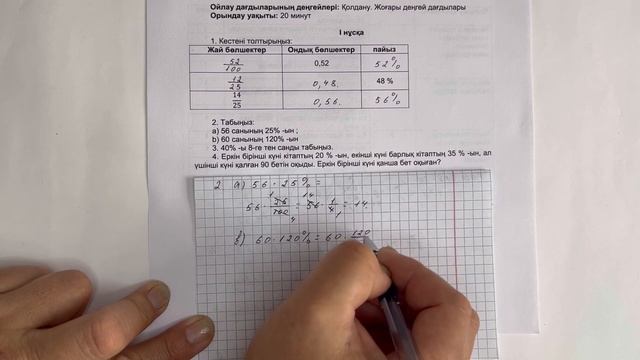 Ойлау дағдыларының деңгейлері: Қолдану. Жоғары деңгей дағдылары
Орындау уақыты: 20 минут
I нұсқа
1. Кестені толтырыңыз:
Жай бөлшектер Ондық бөлшектер пайыз
52/100 0,52 52%
12/25 0,48. 48 %
14/25 0,56. 56%
2. Табыңыз:
a) 56 санының 25% -ын ;
b) 60 санының 120% -ын
3. 40% -ы 8-ге тең санды табыңыз.
4. Еркін бірінші күні кітаптың 20 % -ын, екінші күні барлық кітаптың 35 % -ын, ал
үшінші күні қалған 90 бетін оқыды. Еркін бірінші күні қанша бет оқыған?
2 a) 56 · 25% =
56 · 25/100 = 56 · 1/4 = 14.
б) 60 · 120% = 60 · 120